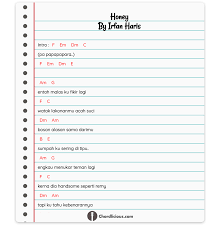 Honey
By Irfan Haris
Intro : F Em Dm C
(pa papapapara..)
F Em Dm E
Am G
entah malas ku fikir lagi
F C
watak lakonanmu acah suci
Dm Am
bosan alasan sama darimu
B E
sumpah ku sering di tipu..
Am G
engkau menukar teman lagi
F C
kerna dia handsome seperti remy
Dm Am
tapi ku tahu kebenarannya
Chordlicious.com